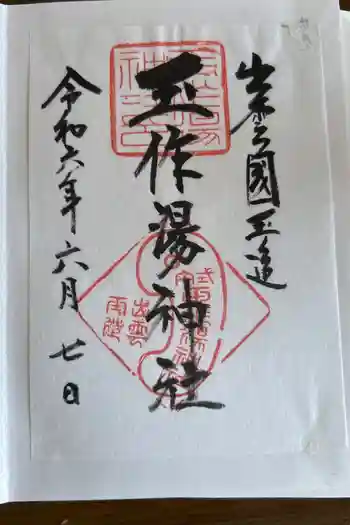 出雲國玉造
玉作湯神社
令和六年六月七日
出雲
玉造